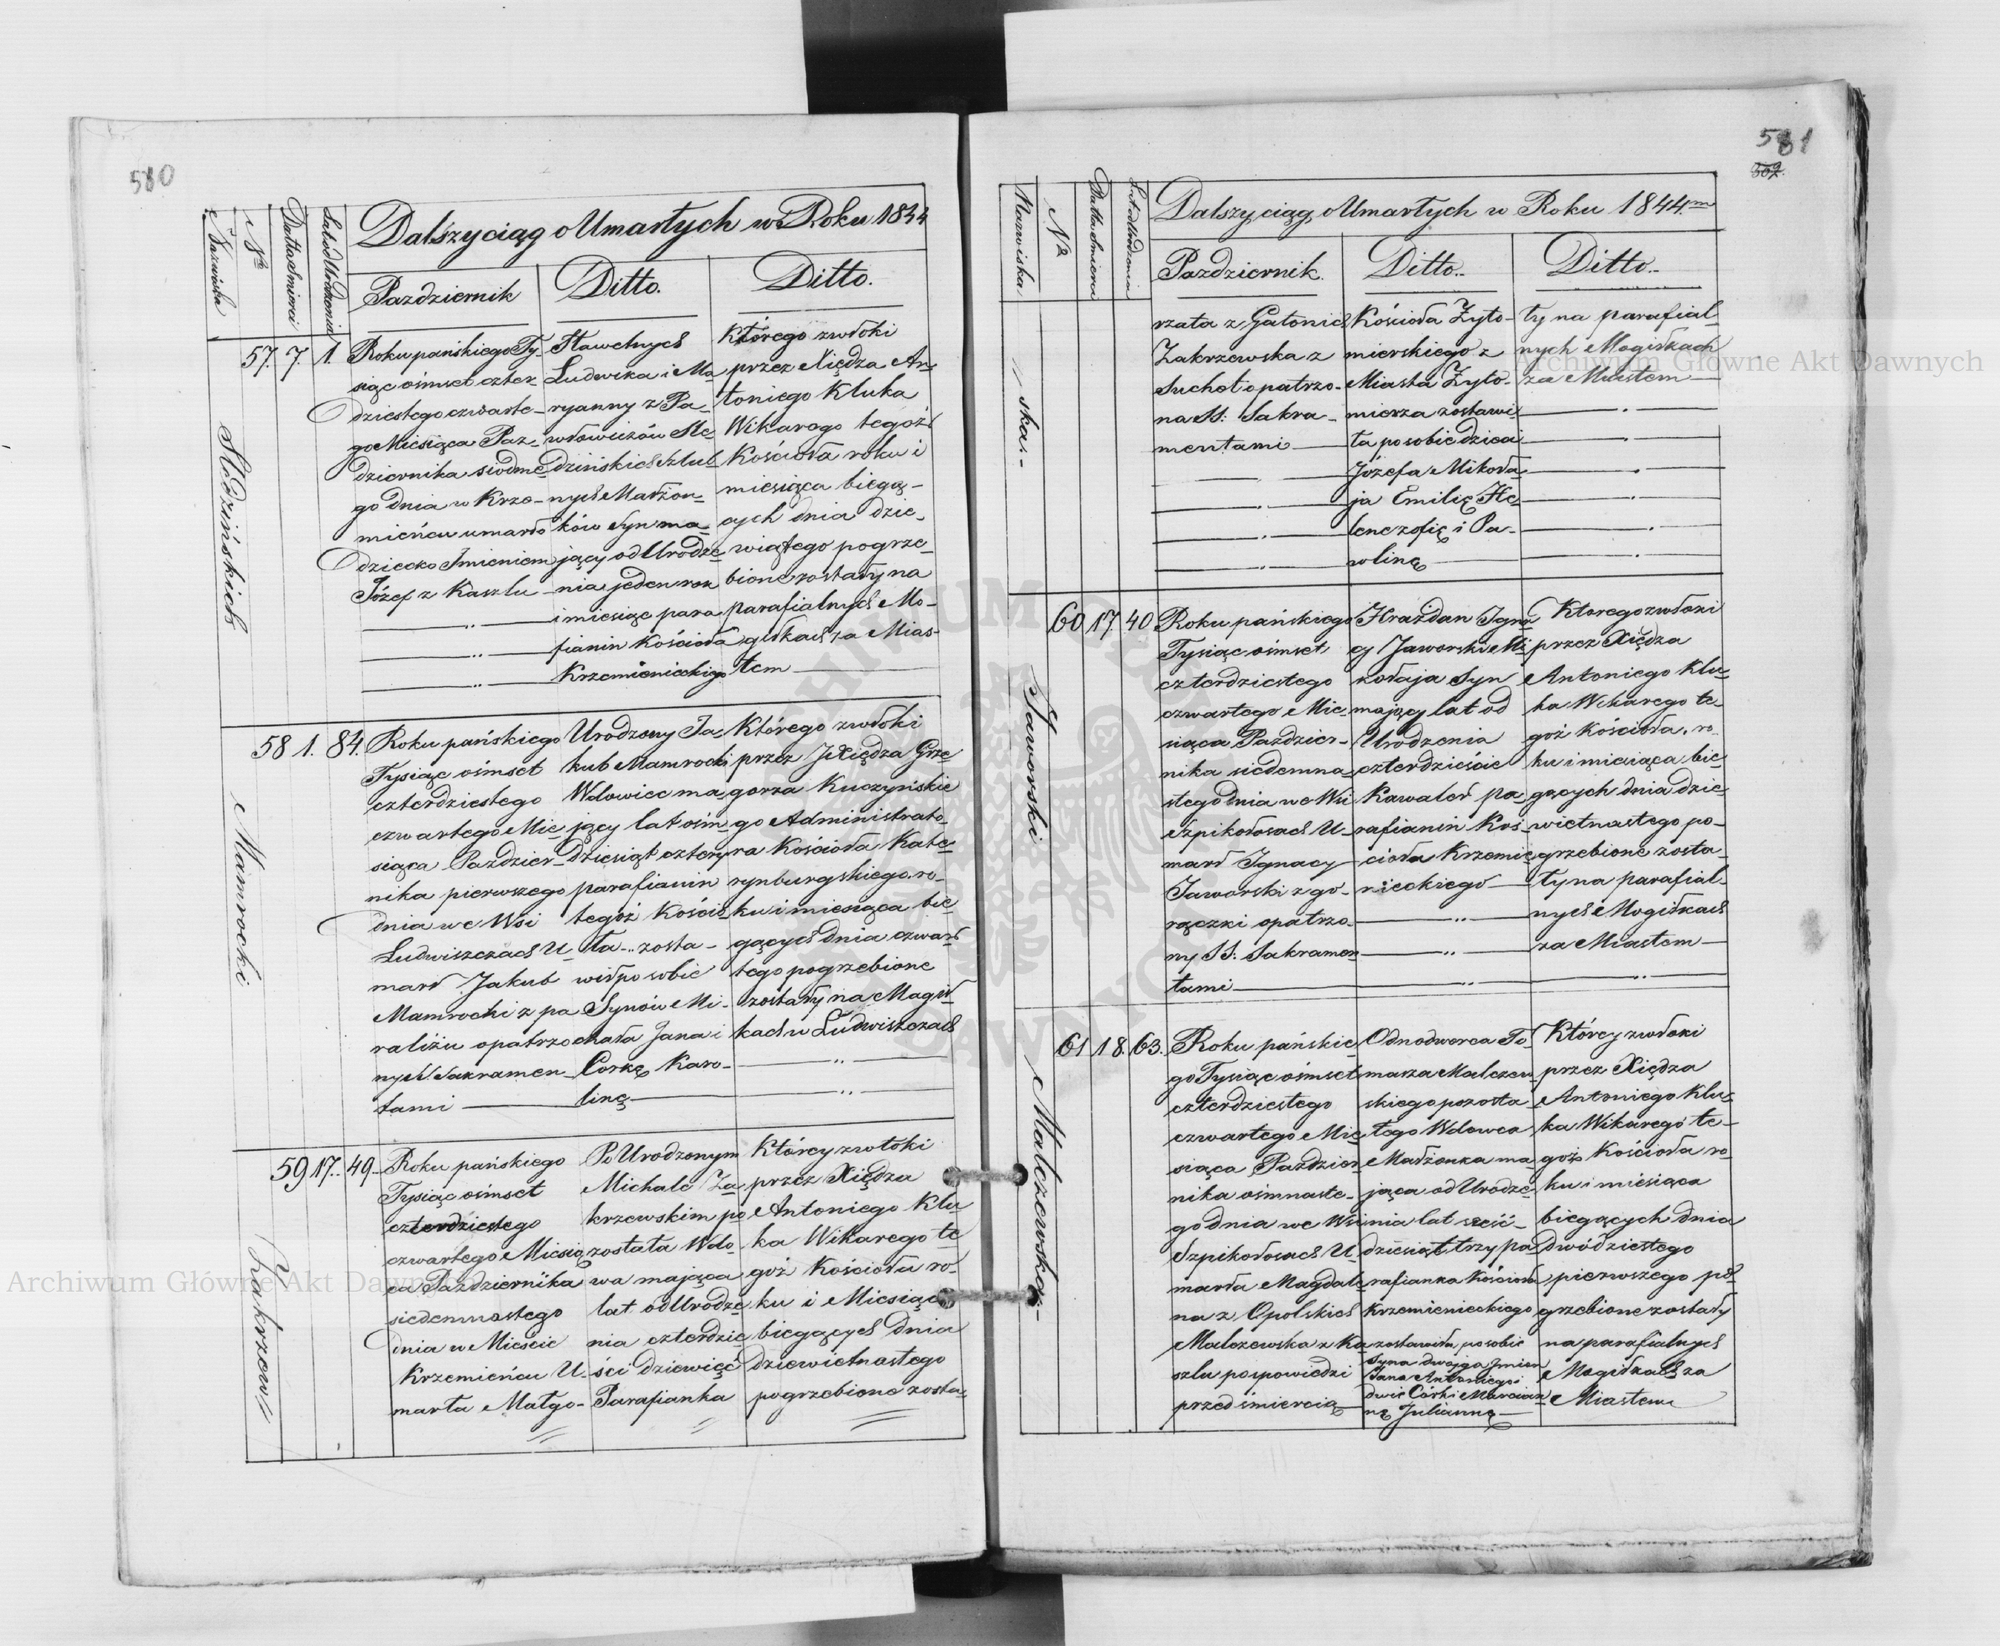 580
Nazwiska
No
Datta Smierci
Lat od Urodzenia
Dalszy ciąg o Umartych w Roku 1844
Pazdziernik
Ditto.
Ditto.
57. 7. 1.
Roku pańskiego Ty-
siąc ośmset czter-
dziestego czwarte-
go Miesiąca Paz-
dziernika siódme-
go dnia w Krze-
mieńcu umarło
dziecko Imieniem
Józef z Kaszlu
Sławetnych
Ludwika i Ma
ryanny z Pa-
włowiczów Sle-
dzińskich Szlub
nych Małżon-
ków Syn ma-
jący od Urodze
nia jeden rok
i miesiąc para
fianin Kościoła
Krzemienieckiego
Którego zwłoki
przez Xiędza An
toniego Kluka
Wikarego tegoż
Kościoła roku i
miesiąca bieżą-
cych dnia dzie-
wiątego pogrze-
bione zostały na
parafialnych Mo-
giłkach za Mias-
tem
58 1. 84.
Mamrocki
Roku pańskiego
Tysiąc ośmset
czterdziestego
czwartego Mie
siąca Pazdzier-
nika pierwszego
dnia we Wsi
Ludwiszczach U-
marł Jakub
Mamrocki z pa
raliżu opatrzo
nych Sakramen
tami
Urodzony Ja-
kub Mamrocki
Wdowiec ma
jący lat ośm-
dziesiąt cztery
parafianin
tegoż Kościo
ła zosta-
wił po sobie
Synów Mi-
chała Jana i
Corkę Karo-
linę
Którego zwłoki
przez JXiędza Grze
gorza Kuczyńskie
go Administrato-
ra Kościoła Kate-
rynburgskiego ro-
ku i miesiąca bie
żących dnia czwar
tego pogrzebione
zostały na Magił
kach w Ludwiszczach
59 17. 49
Zakrzews
Roku pańskiego
Tysiąc ośmset
czterdziestego
czwartego Miesią
ca Pazdziernika
siedemnastego
dnia w Mieście
Krzemieńcu U-
marła Małgo-
Po Urodzonym
Michale Za
krzewskim po
została Wdo-
wa mająca
lat od Urodze
nia czterdzie
ści dziewięć
Parafianka
Którcy zwłoki
przez Xiędza
Antoniego Klu
ka Wikarego te
goż Kościoła ro-
ku i Miesiąca
bieżących dnia
dziewietnastego
pogrzebione zosta-
581
Nazwiska
No
Datta Smierci
Lat od Urodzenia
Dalszy ciąg o Umartych w Roku 1844m
Pazdziernik.
Ditto..
Ditto..
-skas-
rzata z Gatonich
Zakrzewska z
Suchot opatrzo-
na SS: Sakra-
mentami
Kościoła Żyto-
mierskiego z
Miasta Żyto-
mierza zostawi
ła po sobie dzieci
Józefa Mikoła
ja Emilię He-
lenę zofię i Pa-
wlinę
ły na parafial-
nych Magiłkach
za Miastem
60 17. 40
Jaworski
Roku pańskiego
Tysiąc ośmset
czterdziestego
czwartego Mie-
siąca Pazdzier-
nika siedemna-
stego dnia we Wsi
Szpikołosach U-
marł Ignacy
Jaworski z go-
rączki opatrzo-
ny SS: Sakramen
tami
Hrażdan Igna
cy Jaworski Mi
kołaja Syn
mający lat od
Urodzenia
czterdzieście
Kawaler pa-
rafianin Koś-
cioła Krzemie
nieckiego
Ktorego zwłoki
przez Xiędza
Antoniego Klu-
ka Wikarego te-
goż Kościoła, ro-
ku i miesiąca bie-
żących dnia dzie-
wietnastego po-
grzebione zosta-
ły na parafial-
nych Mogiłkach
za Miastem
61 18. 63.
Malczewska
Roku pańskie-
go Tysiąc ośmset
czterdziestego
czwartego Mie
siąca Pazdzier
nika ośmnaste-
go dnia we Wsi
Szpikołosach U-
marła Magdale
na z Opolskich
Malczewska z Ka
szlu po spowiedzi
przed śmiercią
Odnodworca To
masza Malczew
skiego pozosta
łego Wdowca
Małżonka ma
jąca od Urodze
nia lat sześć-
dziesiąt trzy pa
rafianka Kościoła
Krzemienieckiego
zostawiła po sobie
Syna dwojga Imion
Jana Antoniego i
dwie Córki Marcian
nę Juliannę
Którcy zwłoki
przez Xiędza
Antoniego Klu-
ka Wikarego te-
goż Kościoła ro-
ku i miesiąca
bieżących dnia
dwódziestego
pierwszego po-
grzebione zostały
na parafialnych
Mogiłkach za
Miastem
Archiwum Główne Akt Dawnych
Archiwum Główne Akt Dawnych